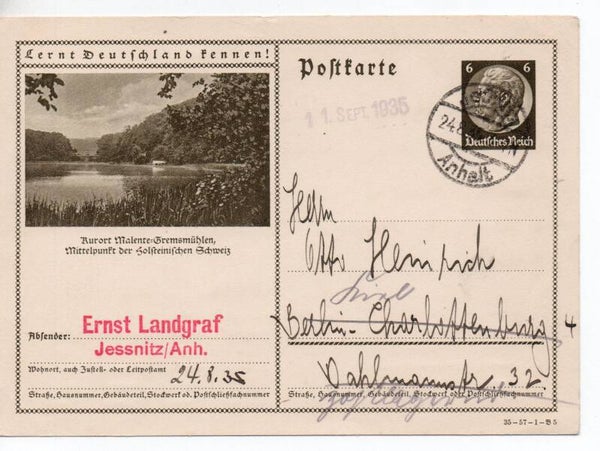 Lernt Deutschland kennen!
Kurort Malente-Gremsmühlen,
Mittelpunkt der Holsteinischen Schweiz
Absender:
Ernst Landgraf
Jessnitz/Anh.
Wohnort, auch Zustell- oder Leitpostamt
24.8.35
Straße, Hausnummer, Gebäudeteil, Stockwerk od. Postschließfachnummer
Postkarte
11. SEPT. 1935
6 6
Deutsches Reich
24.8.
Anhalt
Herrn
Otto Heinrich
Berlin-Charlottenburg 4
Dahlmannstr. 32.
Straße, Hausnummer, Gebäudeteil, Stockwerk oder Postschließfachnummer
35-57-1-B5